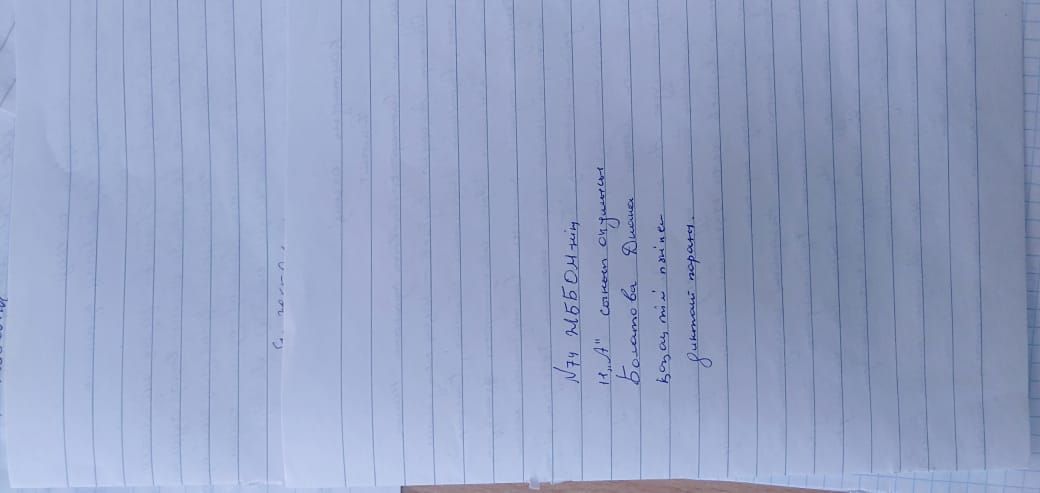 №74 ЖББОМ-нің
11 "А" сынып оқушысы
Болатова Диана
қазақ тілі пәнінен
диктант парағы.